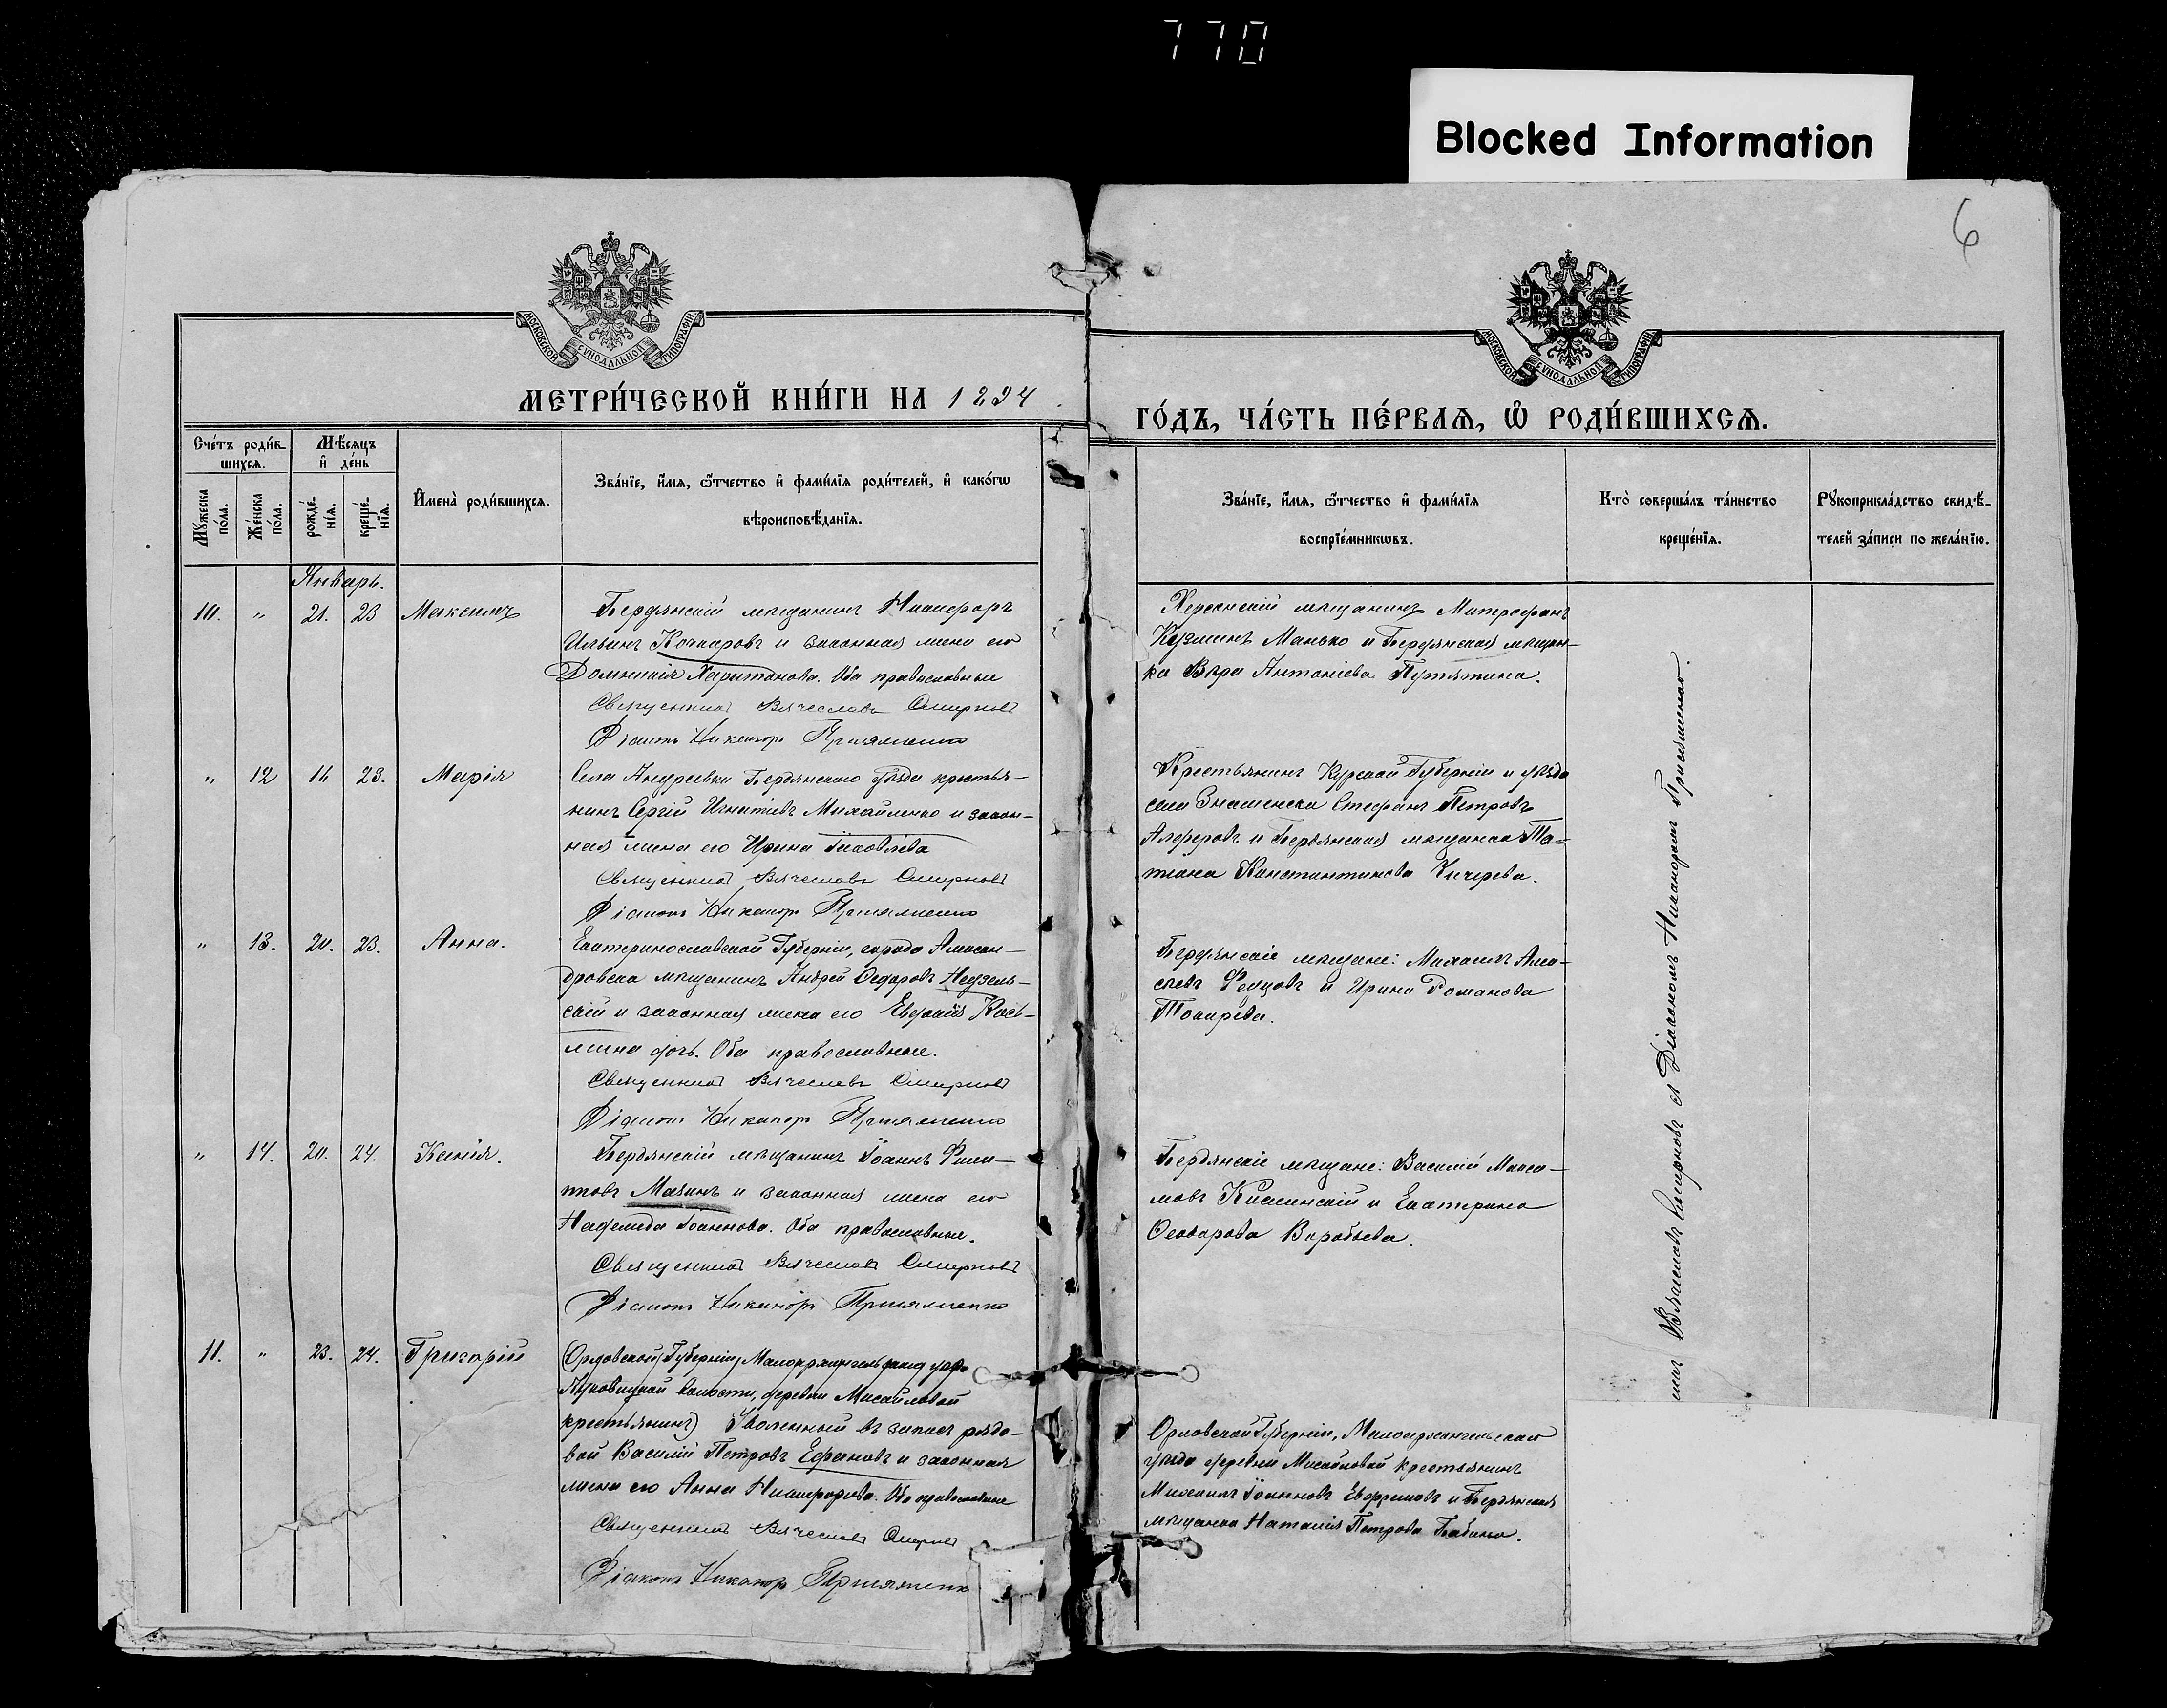 770
Blocked Information
6
МОСКОВСКОЙ СѴНОДАЛЬНОЙ ТИПОГРАФІИ
МОСКОВСКОЙ СѴНОДАЛЬНОЙ ТИПОГРАФІИ
МЕТРИ́ЧЕСКОЙ КНИ́ГИ НА 1894
ГО́ДЪ, ЧА́СТЬ ПЕ́РВАѦ, Ѽ РОДИ́ВШИХСѦ.
Сче́тъ роди́в-
шихсѧ.
Мꙋжеска по́ла.
Же́нска по́ла.
Мѣ́сѧцъ
и҆ де́нь
рожде́-
нїѧ.
креще́-
нїѧ.
И҆мена̀ роди́вшихсѧ.
Зва́нїе, и҆́мѧ, ѻ҆́тчество и҆ фами́лїѧ роди́телей, и҆ како́гѡ
вѣроисповѣ́данїѧ.
Зва́нїе, и҆́мѧ, ѻ҆́тчество и҆ фами́лїѧ
воспрїе́мникѡвъ.
Кто̀ соверша́лъ та́инство
креще́нїѧ.
Рꙋкоприкла́дство свидѣ́-
телей за́писи по жела́нїю.
Январь.
10. " 21. 23 Максимъ
Бердянскій мѣщанинъ Никифоръ
Ильинъ Кочкаровъ и законная жена его
Домникія Харитонова. Оба православные
Священникъ Вячеславъ Смирновъ
Діаконъ Никаноръ
Херсонскій мѣщанинъ Митрофанъ
Кузминъ Манько и Бердянская мѣщан-
ка Вѣра Антоніева Путятина.
" 12 16 23. Марія
Села Андреевки Бердянскаго уѣзда крестья-
нинъ Сергій Игнатіевъ Михайленко и закон-
ная жена его Ирина Іаковлева
Священникъ Вячеславъ Смирновъ
Діаконъ Никаноръ
Крестьянинъ Курской Губерніи и уѣзда
села Знаменска Стефанъ Петровъ
Алферовъ и Бердянская мѣщанка Та-
тіана Константинова Кичерева.
" 13. 20. 23. Анна.
Екатеринославской Губерніи, города Алексан-
дровска мѣщанинъ Андрей Ѳедоровъ Недзель-
скій и законная жена его Евфимія Косъ-
мина дочь. Оба православные.
Священникъ Вячеславъ Смирновъ
Діаконъ Никаноръ
Бердянскіе мѣщане: Михаилъ Алек-
сѣевъ и Ирина Романова
Токарева.
" 14. 20. 24. Ксенія.
Бердянскій мѣщанинъ Іоаннъ Филип-
повъ Мазинъ и законная жена его
Надежда Іоаннова. Оба православные.
Священникъ Вячеславъ Смирновъ
Діаконъ Никаноръ
Бердянскіе мѣщане: Василій Макси-
мовъ и Екатерина
Ѳеодорова Воробьева.
11. " 23. 24. Григорій
(Орловской Губерніи, Малоархангельскаго уѣзда
волости, деревни Мисайловой
крестьянинъ) Уволенный въ запасъ рядо-
вой Василій Петровъ Ефановъ и законная
жена его Анна Никифорова. Оба православные
Священникъ Вячеславъ Смирновъ
Діаконъ Никаноръ
Орловской Губерніи, Малоархангельскаго
уѣзда деревни Мисайловой крестьянинъ
Михаилъ Іоанновъ Евфремовъ и Бердянская
мѣщанка Наталія Петрова Бабина.
Вячеславъ Смирновъ съ Діакономъ Никаноромъ